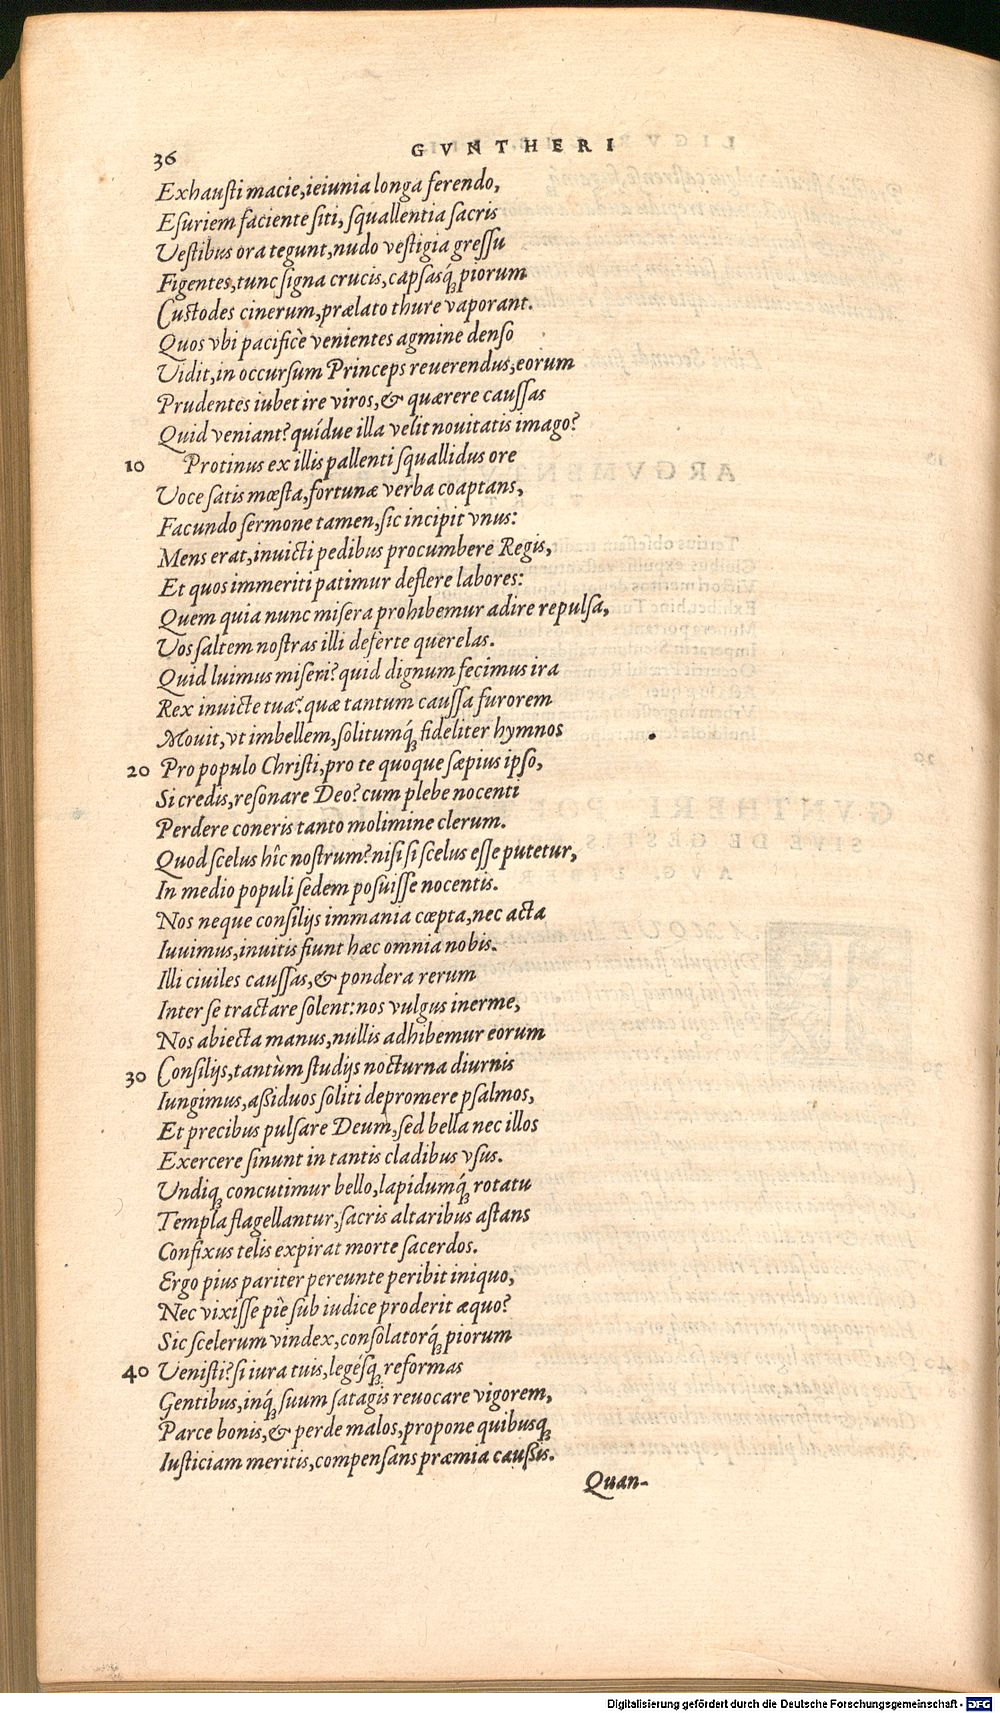 36 GVNTHERI
Exhausti macie, ieiunia longa ferendo,
Esuriem faciente siti, squallentia sacris
Vestibus ora tegunt, nudo vestigia gressu
Figentes, tunc signa crucis, capsasq́; piorum
Custodes cinerum, prælato thure vaporant.
Quos vbi pacificè venientes agmine denso
Vidit, in occursum Princeps reuerendus, eorum
Prudentes iubet ire viros, & quærere caussas
Quid veniant? quídue illa velit nouitatis imago?
10 Protinus ex illis pallenti squallidus ore
Voce satis mœsta, fortunæ verba coaptans,
Facundo sermone tamen, sic incipit vnus:
Mens erat, inuicti pedibus procumbere Regis,
Et quos immeriti patimur deflere labores:
Quem quia nunc misera prohibemur adire repulsa,
Vos saltem nostras illi deferte querelas.
Quid luimus miseri? quid dignum fecimus ira
Rex inuicte tua? quæ tantum caussa furorem
Mouit, vt imbellem, solitumq́; fideliter hymnos
20 Pro populo Christi, pro te quoque sæpius ipso,
Si credis, resonare Deo? cum plebe nocenti
Perdere coneris tanto molimine clerum.
Quod scelus hîc nostrum? nisi si scelus esse putetur,
In medio populi sedem posuisse nocentis.
Nos neque consilijs immania cœpta, nec acta
Iuuimus, inuitis fiunt hæc omnia nobis.
Illi ciuiles caussas, & pondera rerum
Inter se tractare solent: nos vulgus inerme,
Nos abiecta manus, nullis adhibemur eorum
30 Consilijs, tantùm studijs nocturna diurnis
Iungimus, aßiduos soliti depromere psalmos,
Et precibus pulsare Deum, sed bella nec illos
Exercere sinunt in tantis cladibus vsus.
Vndiq; concutimur bello, lapidumq́; rotatu
Templa flagellantur, sacris altaribus astans
Confixus telis expirat morte sacerdos.
Ergo pius pariter pereunte peribit iniquo,
Nec vixisse piè sub iudice proderit æquo?
Sic scelerum vindex, consolatorq́; piorum
40 Venisti? si iura tuis, legésq; reformas
Gentibus, inq́; suum satagis reuocare vigorem,
Parce bonis, & perde malos, propone quibusq;
Iusticiam meritis, compensans præmia caußis.
Quan-
Digitalisierung gefördert durch die Deutsche Forschungsgemeinschaft - DFG